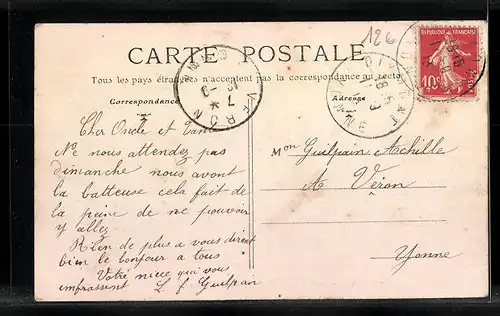 126
CARTE POSTALE
Tous les pays étrangers n'acceptent pas la correspondance au recto
Correspondance
Adresse
REPUBLIQUE FRANÇAISE
10c
VERON
7
Cher Oncle et Tante
Ne nous attendez pas
dimanche nous avont
la batteuse cela fait de
la peine de ne pouvoir
y allez
Rien de plus a vous dirent
bien le bonjour a tous
Votre niece qui vous
embrassent L f Guilpain
Mon Guilpain Achille
A Véron
Yonne